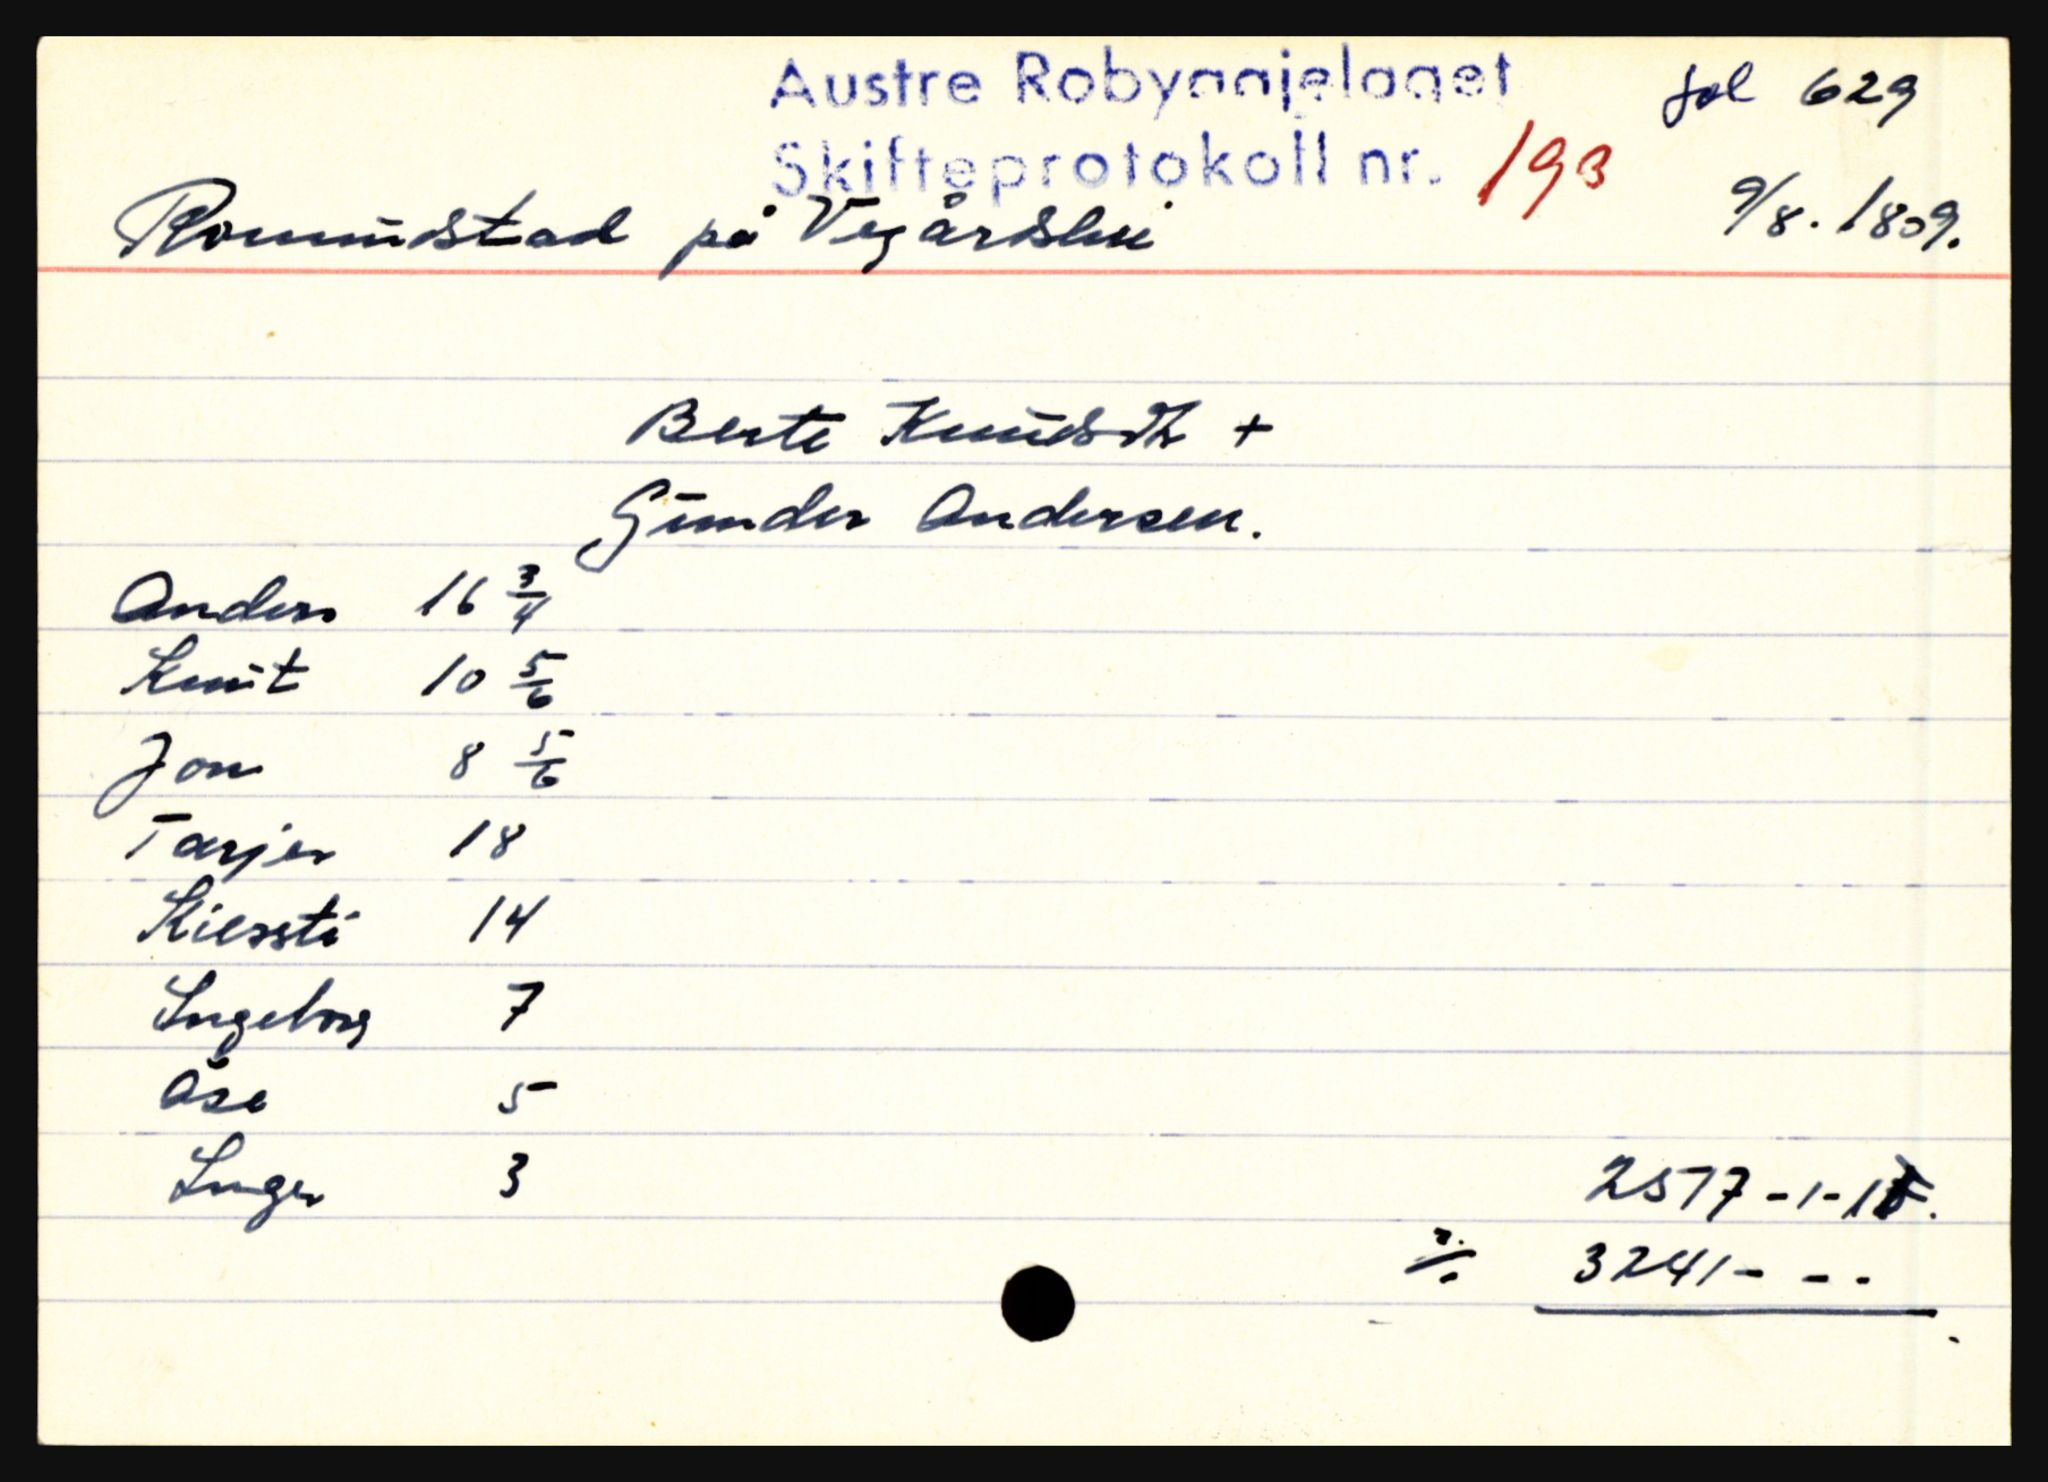 Austre Robyggjelaget fol 629
Skifteprotokoll nr. 193
Romundstad på Vegårdshei 9/8. 1809.
Berte Knudsdtr +
Gunder Andersen.
Anders 16 3/4
Knut 10 5/6
Jon 8 5/6
Tarjer 18
Kiersti 14
Ingeborg 7
Åse 5
Inger 3
2577-1-
÷ 3241- - -